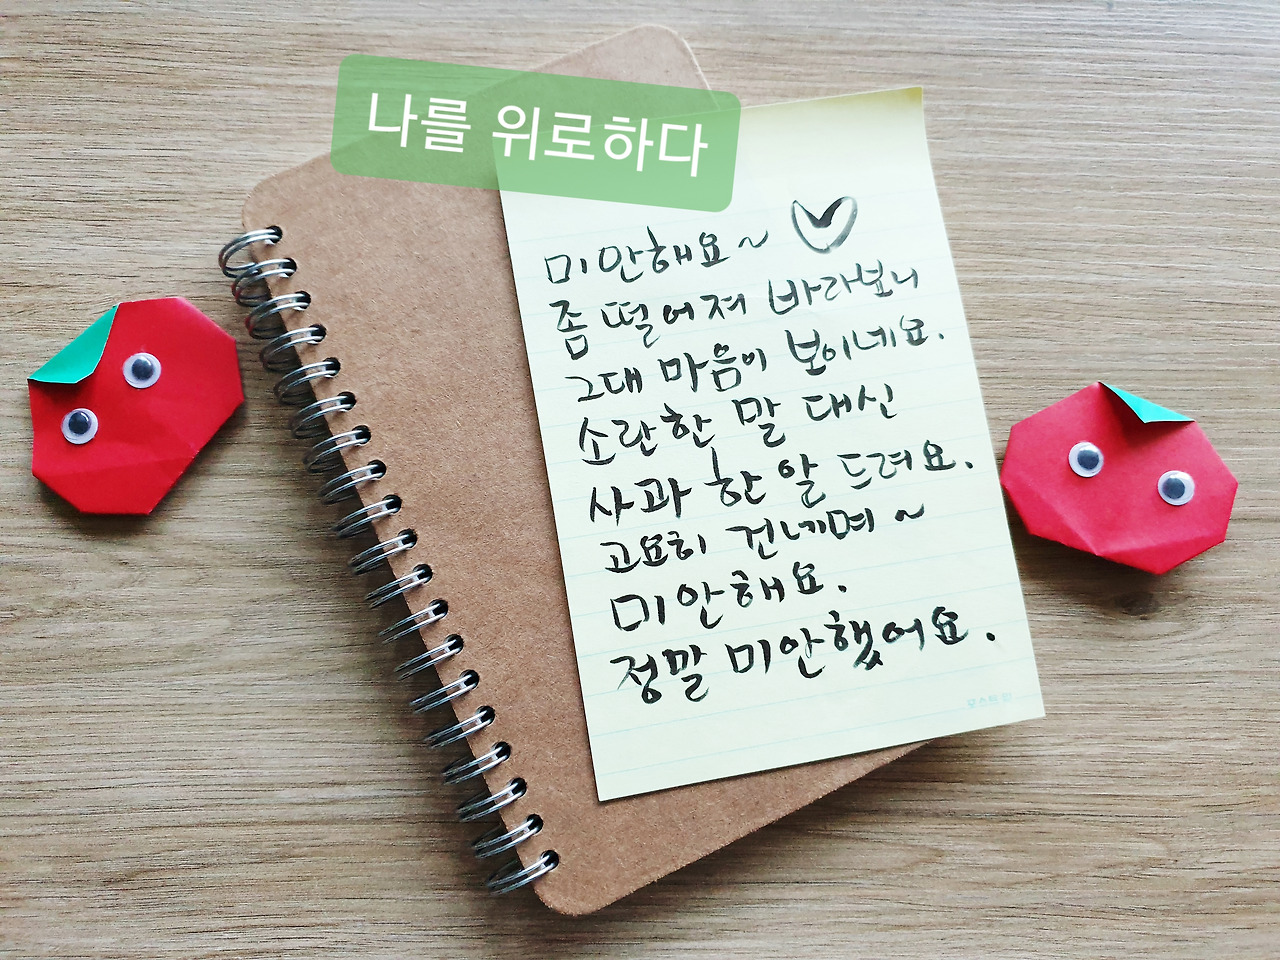 나를 위로하다
미안해요~
좀 떨어져 바라보니
그대 마음이 보이네요.
소란한 말 대신
사과 한 알 드려요.
고요히 건네며~
미안해요.
정말 미안했어요.
포스트잇